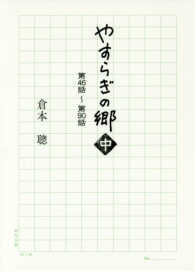 やすらぎの郷 中
第46話～第90話
倉本 聰